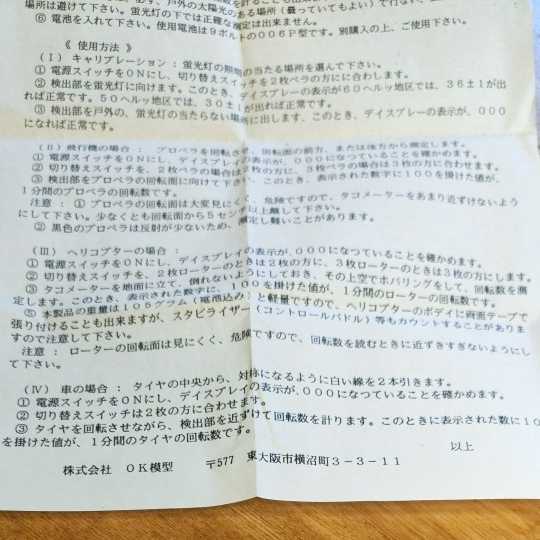 場所は避けて下さい。蛍光灯の下では正確な測定は出来ません。
ある場所（曇っていてもよい）で行ない、
⑥ 電池を入れて下さい。使用電池は９ボルトの００６Ｐ型です。別購入の上、ご使用下さい。
《 使用方法 》
（Ⅰ） キャリブレーション：蛍光灯の照明の当たる場所を選んで下さい。
① 電源スイッチをＯＮにし、切り替えスイッチを２枚ペラの方に合わします。
② 検出部を蛍光灯に向けます。このとき、ディスプレーの表示が６０ヘルツ地区では、３６±１が出
れば正常です。５０ヘルッ地区では、３０±１が出れば正常です。
③ 検出部を戸外の、蛍光灯の当たらない場所に出します。このとき、ディスプレーの表示が、０００
になれば正常です。
（Ⅱ） 飛行機の場合： プロペラを回転させ、回転面の前方、または後方から測定します。
① 電源スイッチをＯＮにし、ディスプレイの表示が、０００になっていることを確かめます。
② 切り替えスイッチを、２枚ペラの場合は２枚の方に、３枚ペラの場合は３枚の方に合わせます。
③ 検出部をプロペラの回転面に向けて下さい。このとき、表示された数字に１００を掛けた値が、
１分間のプロペラの回転数です。
注意 ：① プロペラの回転面は大変見にくく、危険ですので、タコメーターをあまり近ずけないよう
にして下さい。少なくとも回転面から５センチ以上離して下さい。
② 黒色のプロペラは反射が少ないため、測定し難いことがあります。
（Ⅲ） ヘリコプターの場合 ：
① 電源スイッチをＯＮにし、ディスプレイの表示が、０００になっていることを確かめる。
② 切り替えスイッチを、２枚ローターのときは２枚の方に、３枚ローターのときは３枚の方にします。
③ タコメーターを地面に立て、倒れないようにしておき、その上空でホバリングをして、回転数を測
定します。このとき、表示された数字に、１００を掛けた値が、１分間のローターの回転数です。
⑤ 本製品の重量は１０６グラム（電池込み）と軽量ですので、ヘリコプターのボディに両面テープで
張り付けることも出来ますが、スタビライザー（コントロールパドル）等もカウントすることがありま
すので注意して下さい。
注意 ： ローターの回転面は見にくく、危険ですので、回転数を読むときに近ずきすぎないようにし
て下さい。
（Ⅳ） 車の場合 ： タイヤの中央から、対称になるように白い線を２本引きます。
① 電源スイッチをＯＮにし、ディスプレイの表示が、０００になっていることを確かめます。
② 切り替えスイッチは２枚の方に合わせます。
③ タイヤを回転させながら、検出部を近ずけて回転数を計ります。このときに表示された数に１０
を掛けた値が、１分間のタイヤの回転数です。
以上
株式会社 ＯＫ模型 〒５７７ 東大阪市横沼町３－３－１１